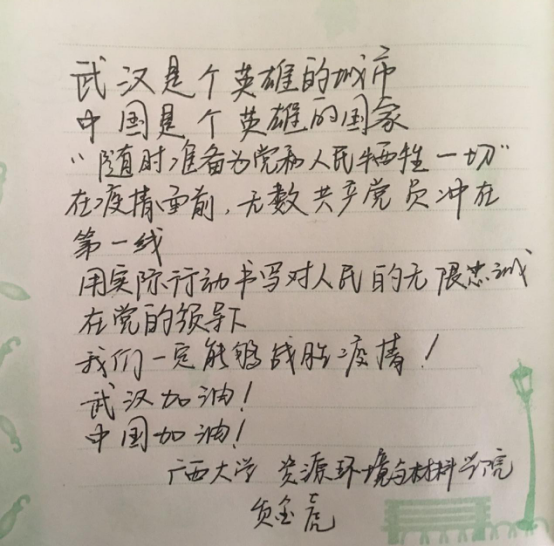 武汉是个英雄的城市
中国是个英雄的国家
“随时准备为党和人民牺牲一切”
在疫情面前，无数共产党员冲在
第一线
用实际行动书写对人民的无限忠诚
在党的领导下
我们一定能够战胜疫情！
武汉加油！
中国加油！
广西大学 资源环境与材料学院
负金虎